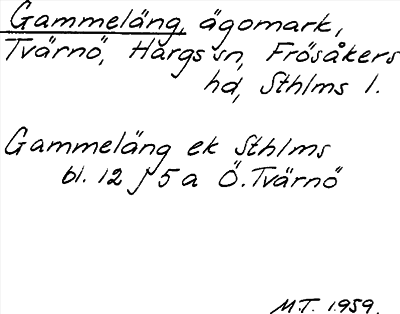 Gammeläng, ägomark,
Tvärnö, Hargs sn, Frösåkers
hd, Sthlms l.
Gammeläng ek Sthlms
bl. 12 J 5 a Ö. Tvärnö
M.T. 1959.